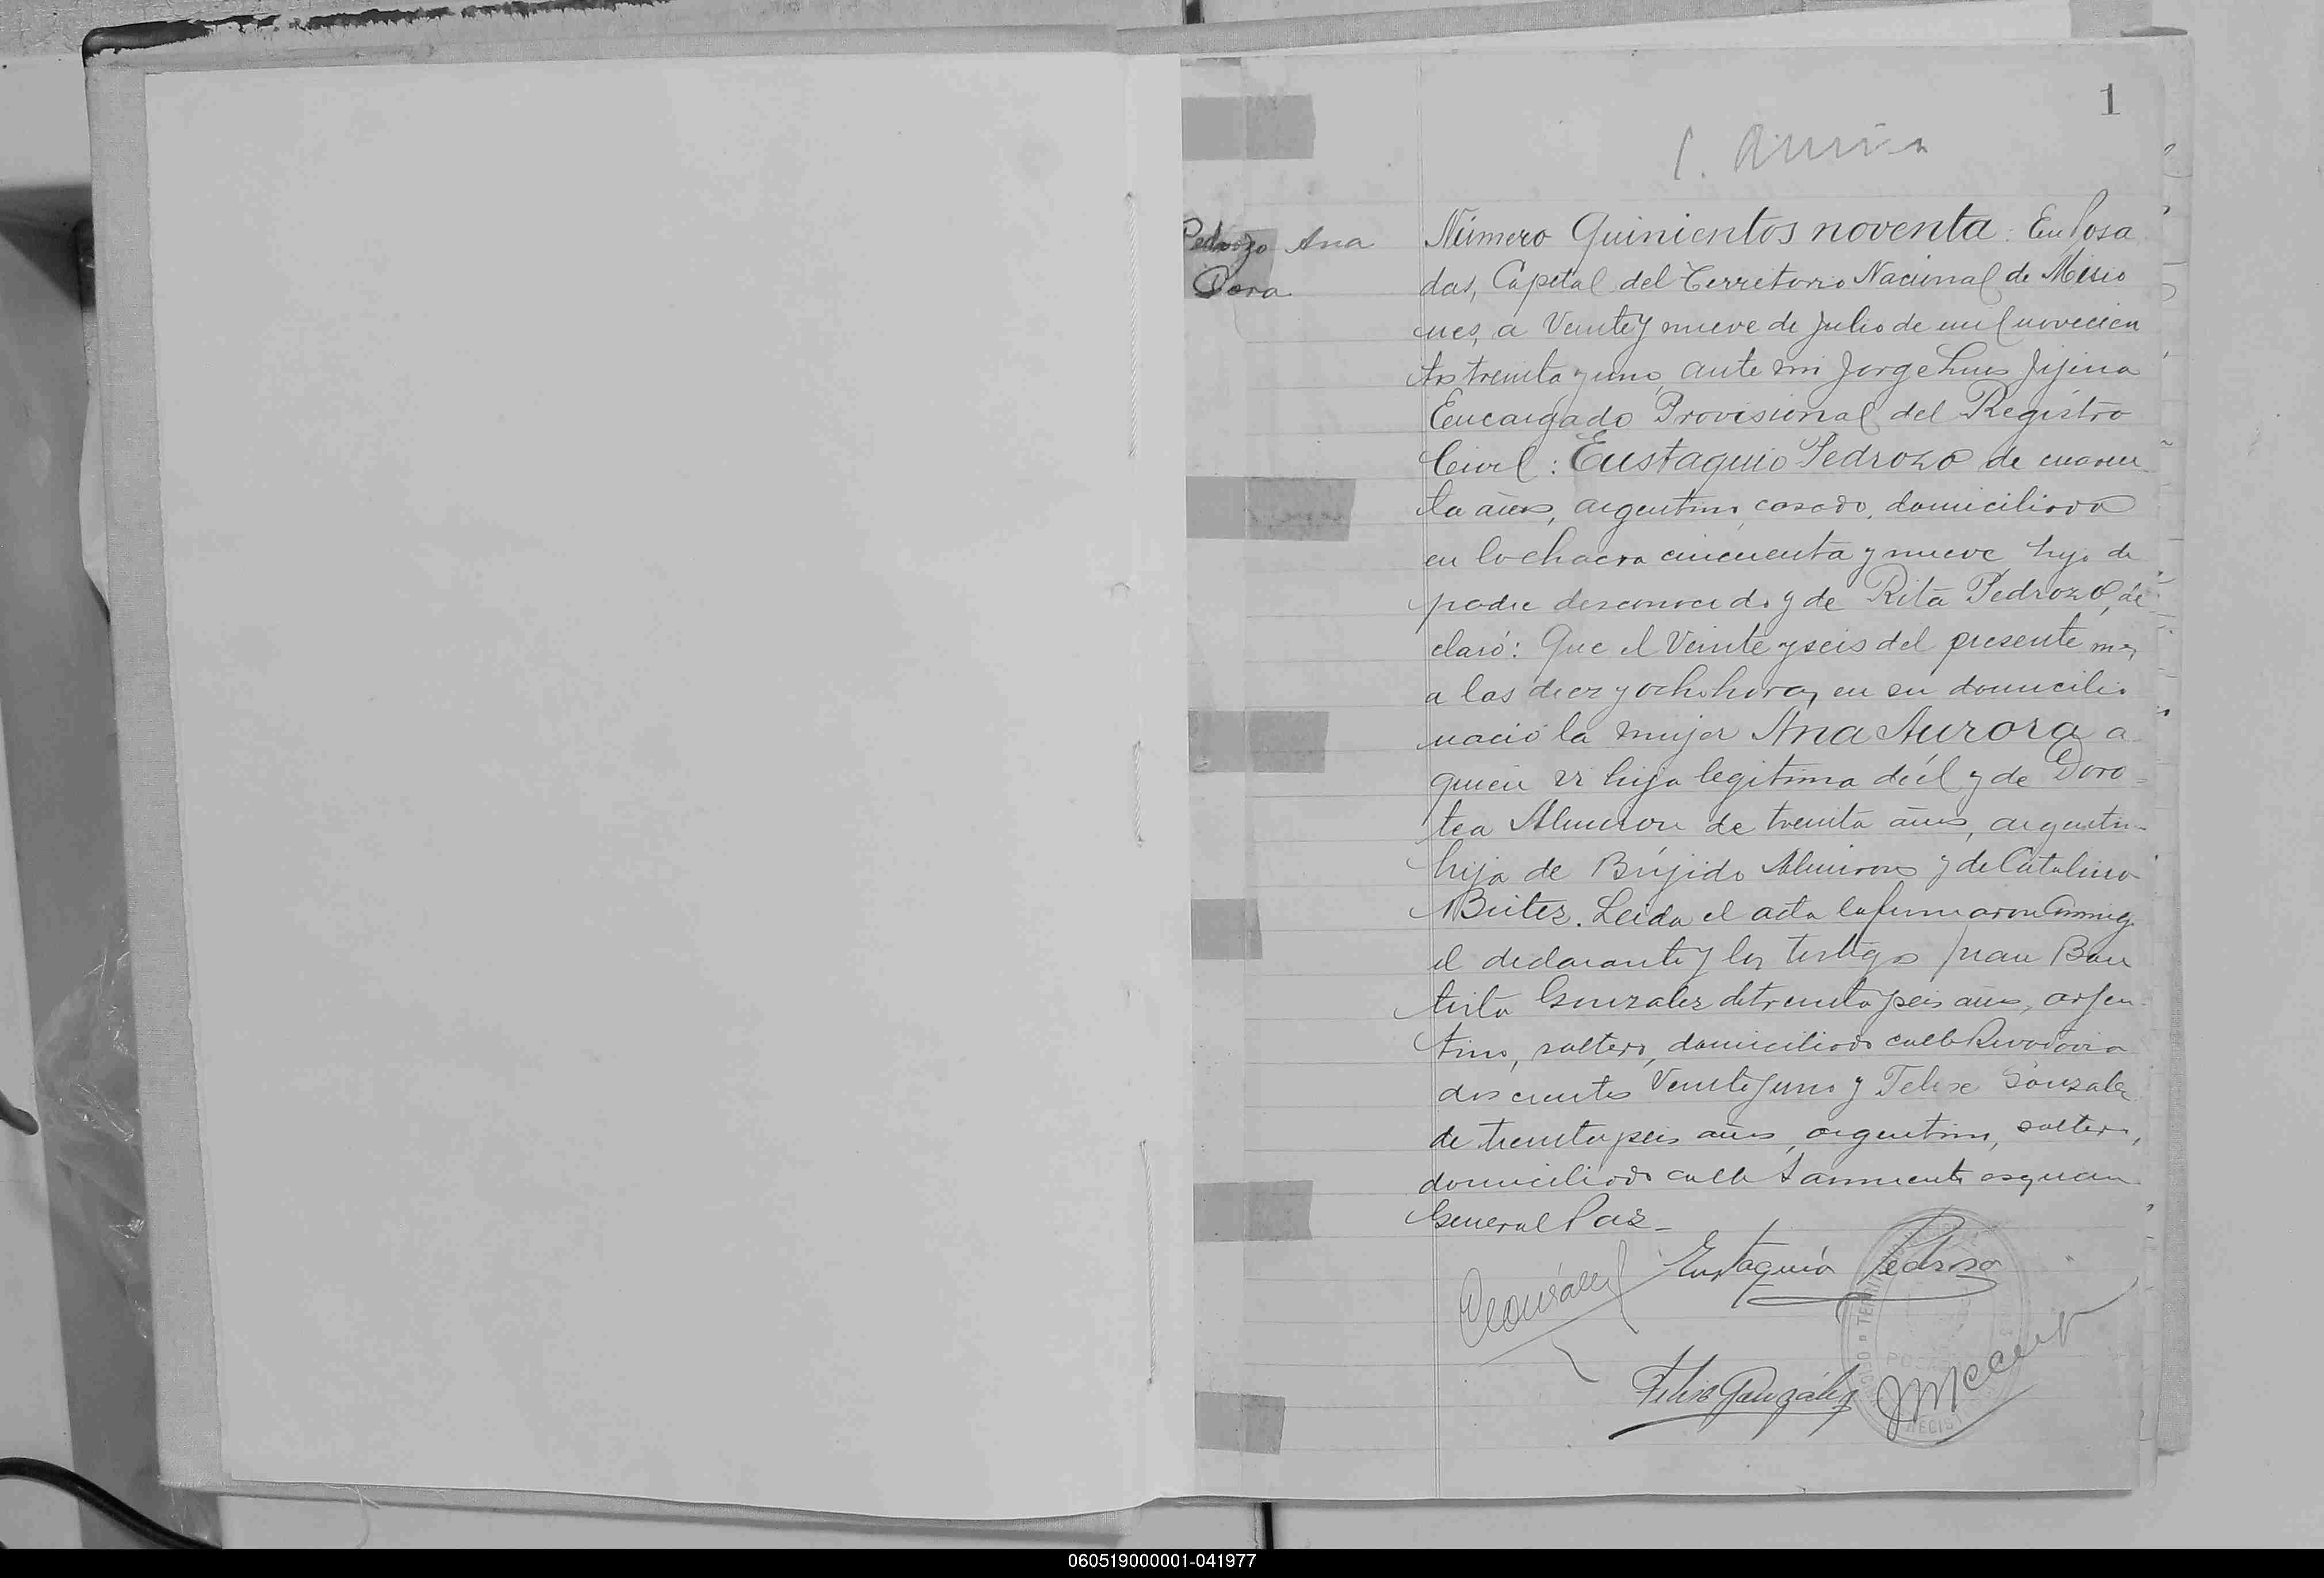 1
Pedrozo Ana
Dora
Número Quinientos noventa: En Posa
das, Capital del Territorio Nacional de Misio
nes, a Veinte y nueve de Julio de mil novecien
tos treinta y uno, ante mi Jorge Luis Jijena
Encargado Provisional del Registro
Civil: Eustaquio Pedrozo de cuaren
ta años, argentino, casado, domiciliado
en la chacra cincuenta y nueve hijo de
padre desconocido y de Rita Pedrozo, de
claró: Que el Veinte y seis del presente mes
a las diez y ocho horas, en su domicilio
nació la mujer Ana Aurora a
quien vi hija legitima de él y de Doro
tea Almiron de treinta años, argentin
hija de Brígido Almiron y de Catalina
Benitez. Leida el acta la firmaron conmigo
el declarante y los testigos Juan Bau
tista Gonzalez de treinta y seis años, argen
tino, soltero, domiciliado calle Rivadavia
doscientos Veinte y uno y Felix Gonzalez
de treinta y seis años, argentino, soltero,
domiciliado calle Sarmiento esquina
General Paz_
Eustaquio Pedroso
Felix González
060519000001-041977